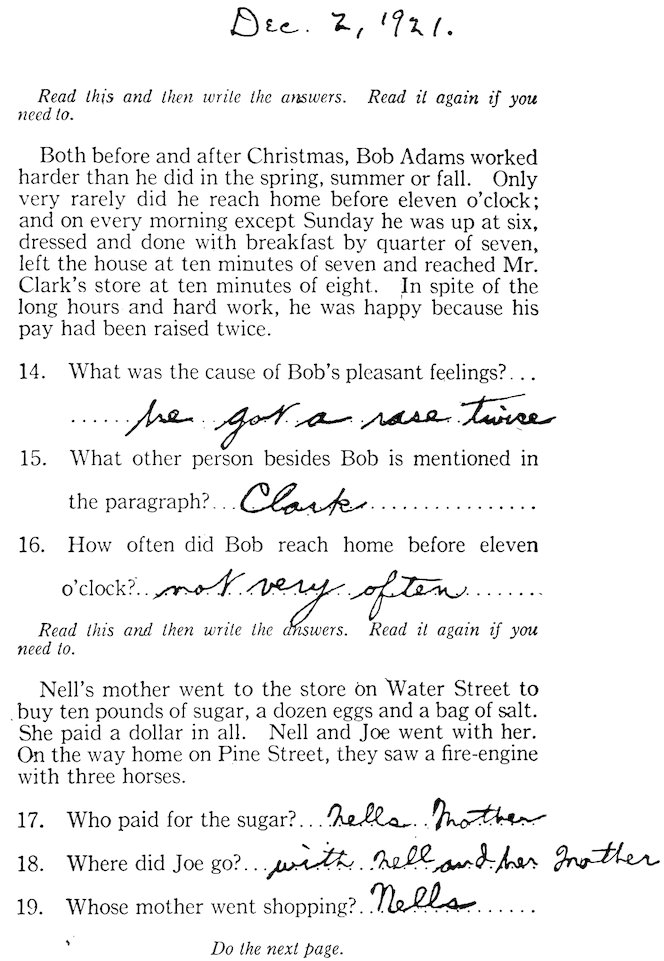 Dec. 2, 1921.
Read this and then write the answers. Read it again if you
need to.
Both before and after Christmas, Bob Adams worked
harder than he did in the spring, summer or fall. Only
very rarely did he reach home before eleven o'clock;
and on every morning except Sunday he was up at six,
dressed and done with breakfast by quarter of seven,
left the house at ten minutes of seven and reached Mr.
Clark's store at ten minutes of eight. In spite of the
long hours and hard work, he was happy because his
pay had been raised twice.
14. What was the cause of Bob's pleasant feelings?...
......he got a rase twice
15. What other person besides Bob is mentioned in
the paragraph?...Clark.................
16. How often did Bob reach home before eleven
o'clock?..not very often........
Read this and then write the answers. Read it again if you
need to.
Nell's mother went to the store on Water Street to
buy ten pounds of sugar, a dozen eggs and a bag of salt.
She paid a dollar in all. Nell and Joe went with her.
On the way home on Pine Street, they saw a fire-engine
with three horses.
17. Who paid for the sugar?...nells Mother
18. Where did Joe go?...with nell and her mother
19. Whose mother went shopping?..Nells.......
Do the next page.